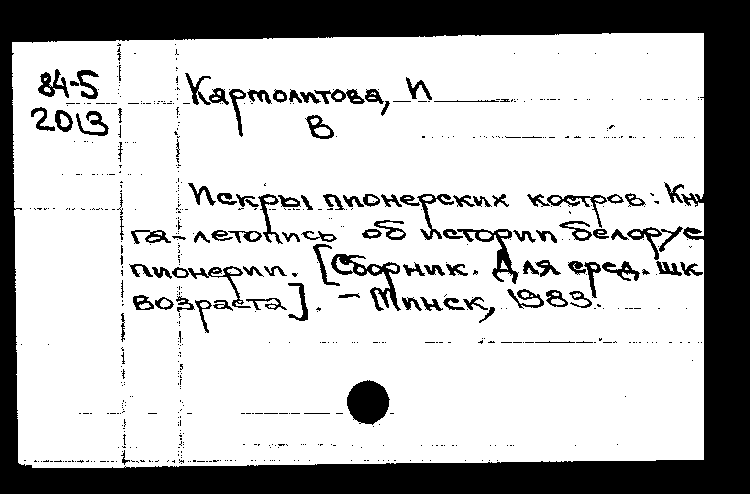 84-5
2013
Картолитова, И
В
Искры пионерских костров: Кни
га-летопись об истории белорус
пионерии. [Сборник. Для сред. шк
возраста]. – Минск, 1983.